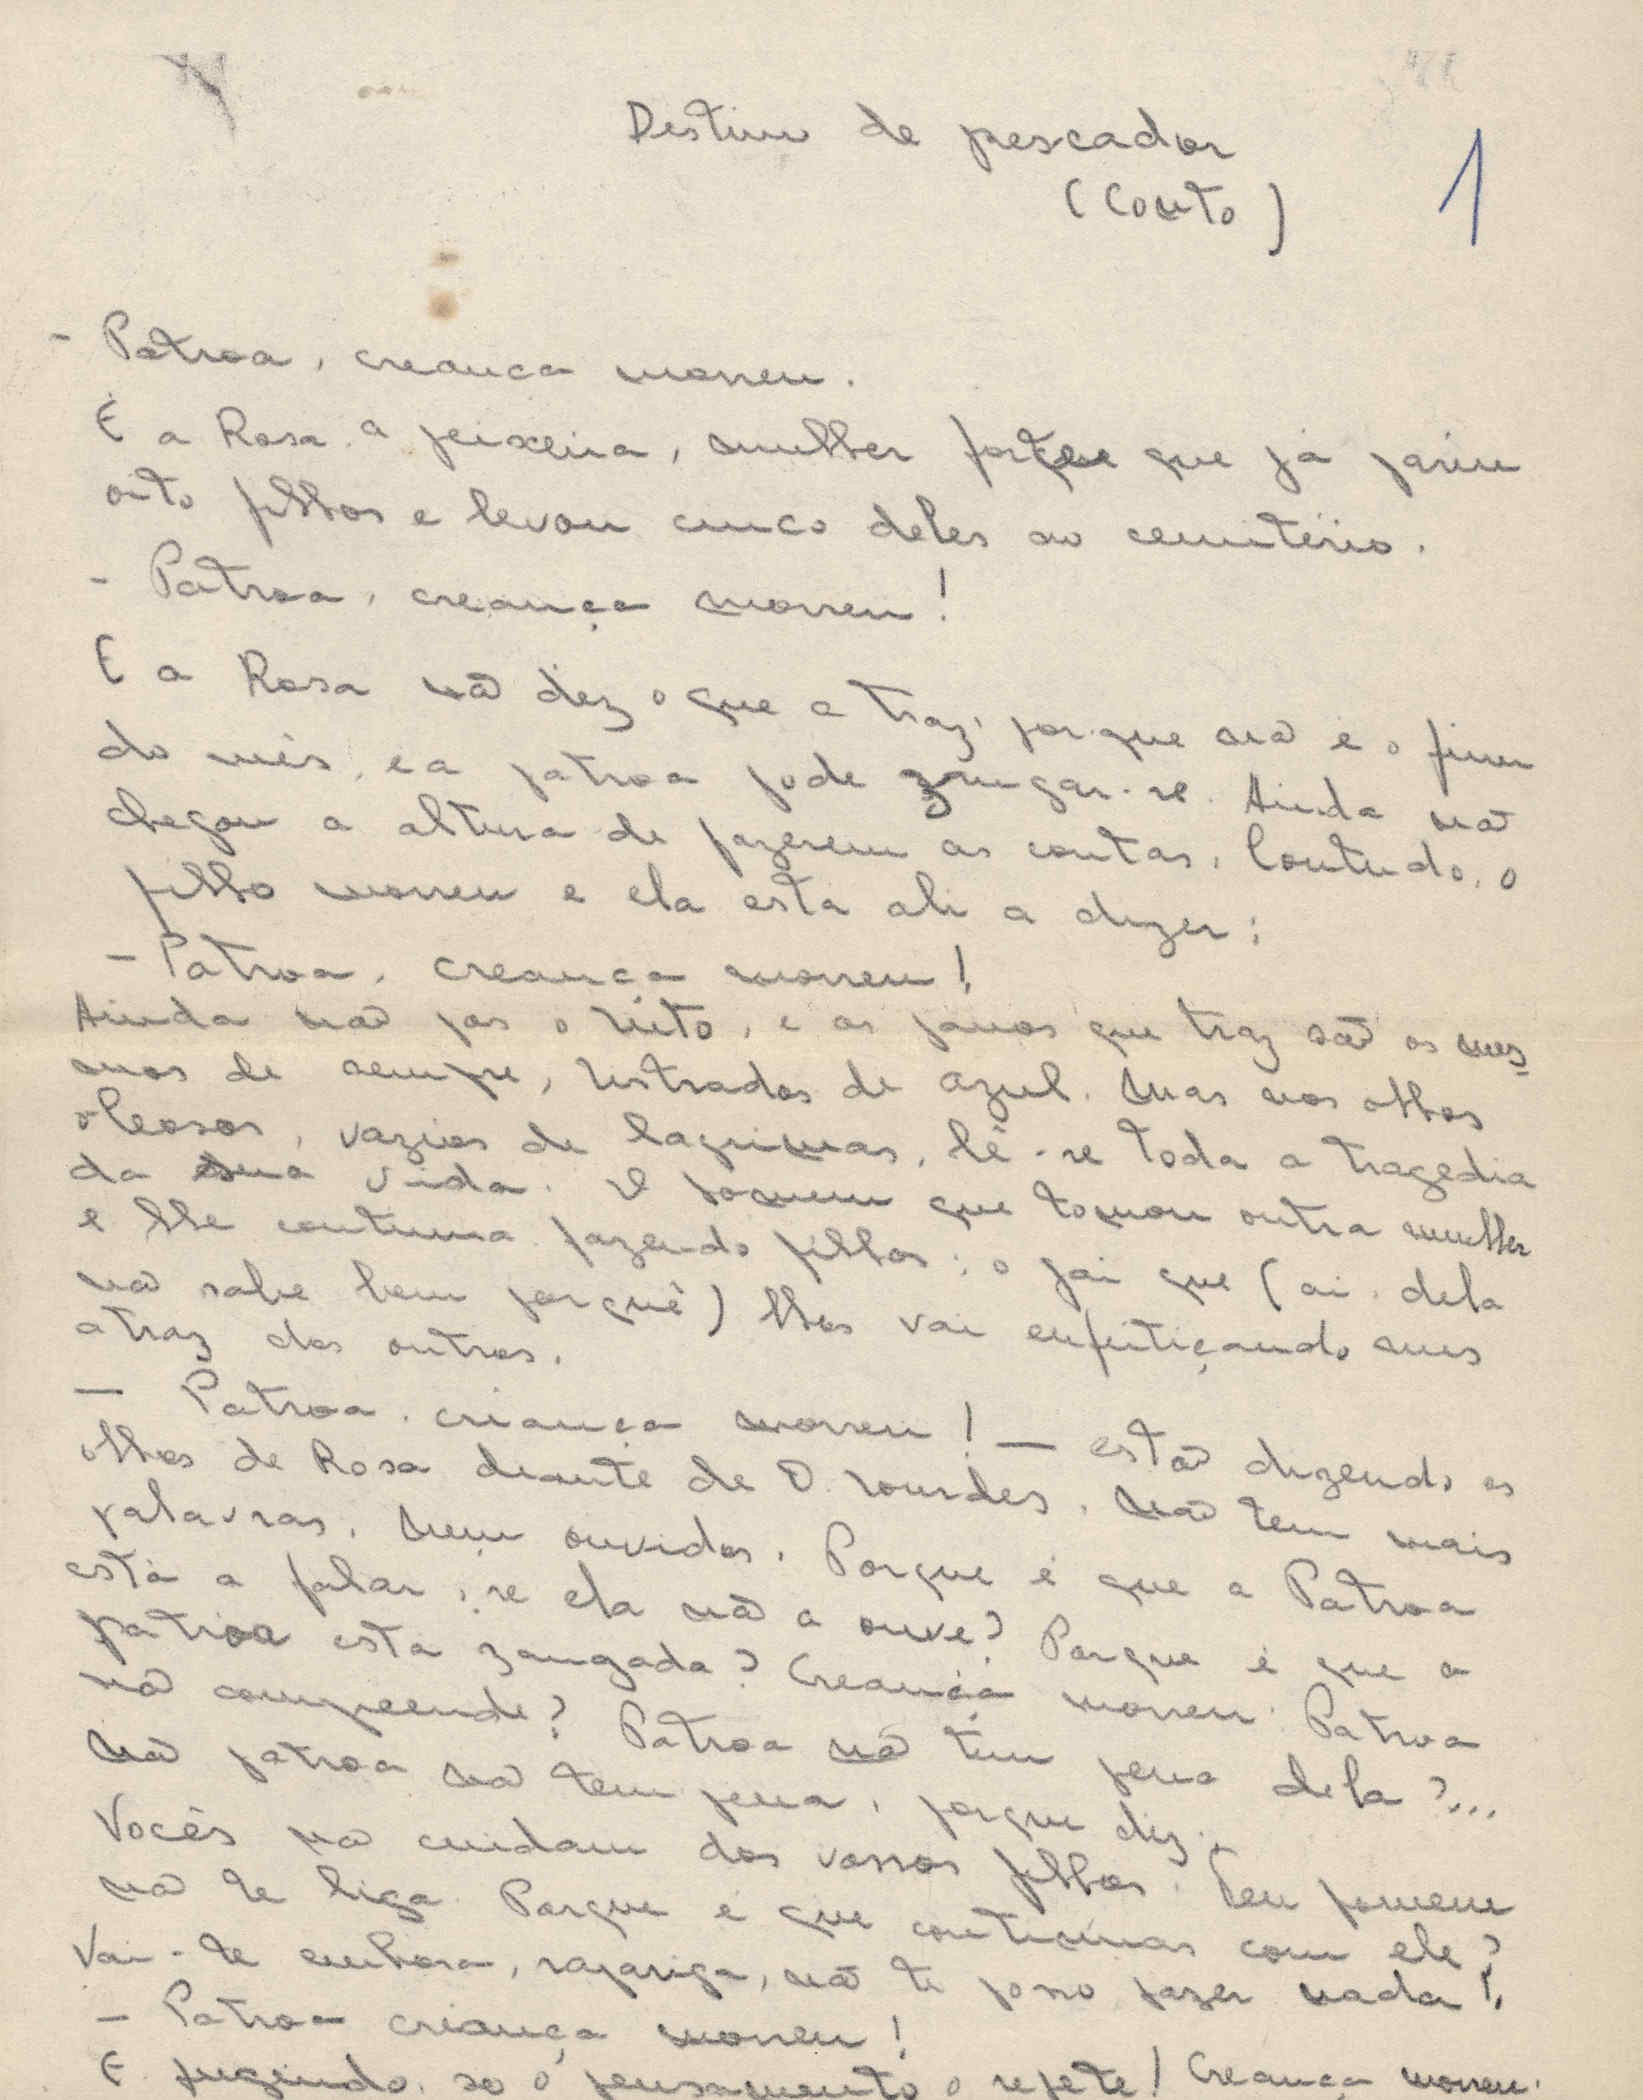 Destino de pescador
(Conto)
1
- Patroa, creança morreu.
É a Rosa a peixeira, mulher forte que já pariu
oito filhos e levou cinco deles ao cemitério.
- Patroa, creança morreu!
E a Rosa não diz o que a traz, porque não é o fim
do mês, e a patroa pode zangar-se. Ainda não
chegou a altura de fazerem as contas. Contudo, o
filho morreu e ela está ali a dizer:
- Patroa, creança morreu!
Ainda não pos o luto, e os panos que traz são os mes-
mos de sempre, listrados de azul. Mas nos olhos
oleosos, vazios de lagrimas, lê-se toda a tragedia
da sua vida. O homem que tomou outra mulher
e lhe continua fazendo filhos; o pai que (ai dela
não sabe bem porquê) lhos vai enfeitiçando uns
atraz dos outros.
- Patroa, criança morreu! - estão dizendo os
olhos de Rosa diante de D. Lourdes. Não tem mais
palavras, nem ouvidos. Porque é que a Patroa
está a falar, se ela não a ouve? Porque é que a
patroa está zangada? Creança morreu. Patroa
não compreende? Patroa não tem pena dela?...
Não patroa não tem pena, porque diz:
Vocês não cuidam dos vossos filhos. Teu homem
não te liga. Porque é que continuas com ele?
Vai-te embora, rapariga, não te posso fazer nada!
- Patroa criança morreu!
E fugindo, só o pensamento o repete! Creança morreu.